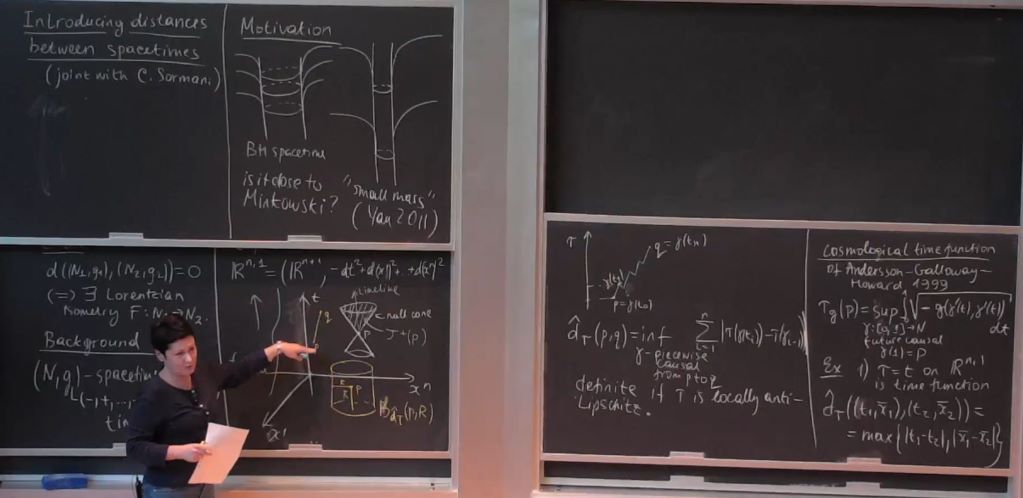 Introducing distances
between spacetimes
(joint with C. Sormani)
Motivation
BH spacetime
is it close to
Minkowski?
"small mass"
(Yau 2011)
d((N₁,g₁),(N₂,g₂))=0
(=) ∃ Lorentzian
isometry F: N₁→N₂.
Background
(N,g) - spacetime
ℝⁿ'¹=(ℝⁿ⁺¹, -dt²+d(x¹)²+..+d(xⁿ)²
timeline
t
null cone
J⁺(p)
p
xⁿ
x¹
R
R
p
B_d̂τ(p,R)
τ
q=γ(tₙ)
γ(tᵢ)
p=γ(t₀)
d̂_τ(p,q)=inf Σⁿᵢ₌₁ |τ(γ(tᵢ))-τ(γ(tᵢ₋₁
γ-piecewise
causal
from p to q
definite if τ is locally anti-
Lipschitz.
Cosmological time function
of Andersson-Galloway-
Howard 1999
τ_g(p)=sup ∫₀¹ √-g(γ'(t),γ'(t)) dt
γ:[0,1]→N
future causal
γ(1)=p
Ex 1) τ=t on ℝⁿ'¹
is time function
d̂_τ((t₁,x̄₁),(t₂,x̄₂))=
=max{|t₁-t₂|,|x̄₁-x̄₂|}